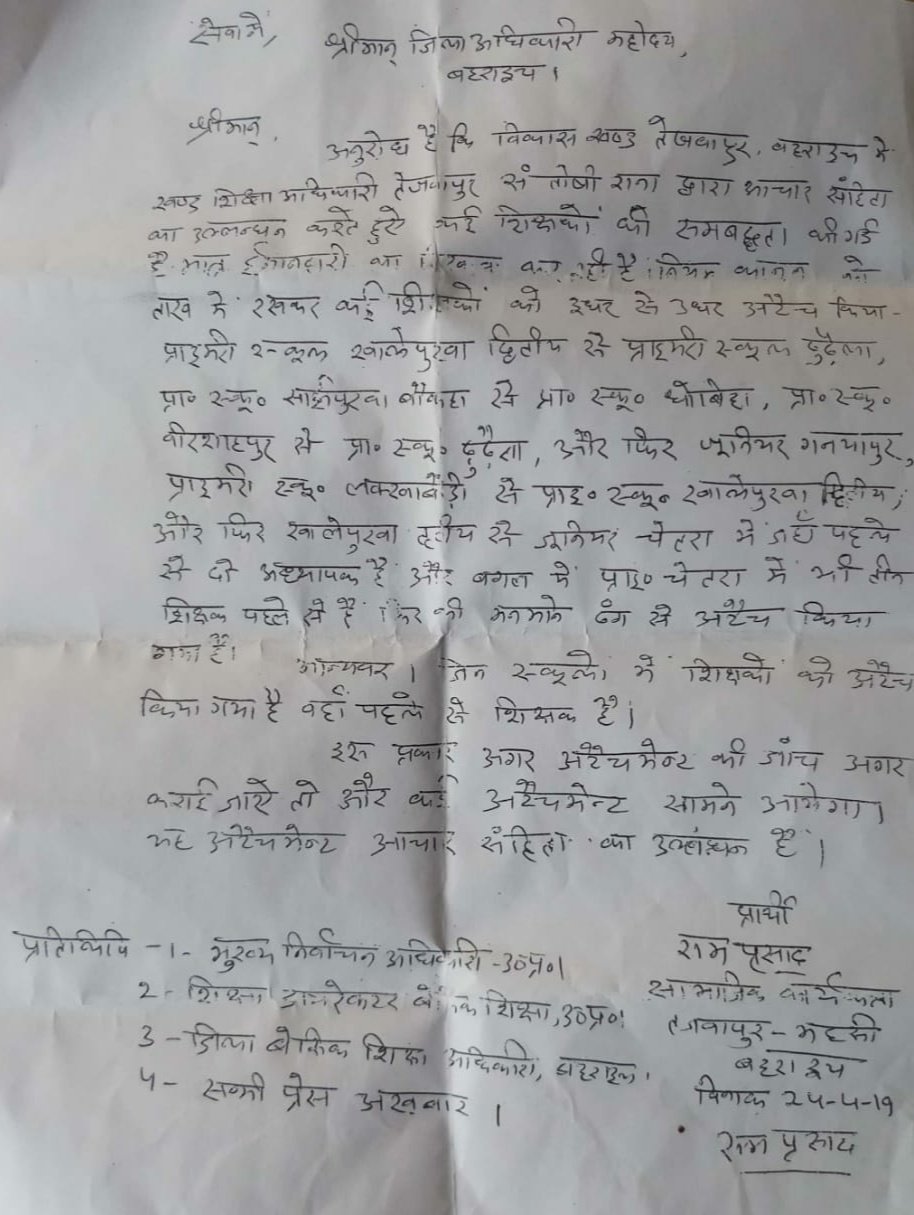 सेवा में,
श्रीमान् जिला अधिकारी महोदय,
बहराइच ।
श्रीमान्,
अनुरोध है कि विकास खण्ड तेजवापुर, बहराइच मे
खण्ड शिक्षा अधिकारी तेजवापुर द्वारा आचार संहिता
का उल्लन्घन करते हुऐ कई शिक्षकों की समबद्धता की गई
है ईमानदारी का कर रही है । नियम कानून को
ताख में रखकर कई शिक्षकों को इधर से उधर अटैच किया-
प्राइमरी स्कूल खालेपुरवा द्वितीय से प्राइमरी स्कूल ढुढ़ैला,
प्रा० स्कू० चौकहा से प्रा० स्कू० धोबिहा, प्रा० स्कू०
वीरशाहपुर से प्रा० स्कू० और फिर जूनियर गनयापुर,
प्राइमरी स्कू० से प्राइ० स्कू० खालेपुरवा द्वितीय,
और फिर खालेपुरवा तृतीय से जूनियर चेतरा में जहाँ पहले
से दो अध्यापक हैं और बगल में प्राइ० चेतरा में भी तीन
शिक्षक पहले से हैं । फिर भी मनमाने ढंग से अटैच किया
गया है।
मान्यवर । जिन स्कूलो में शिक्षकों को अटैच
किया गया है वहाँ पहले से शिक्षक हैं ।
इस प्रकार अगर अटैचमेन्ट की जाँच अगर
कराई जाऐ तो और कई अटैचमेन्ट सामने आयेगा ।
यह अटैचमेन्ट आचार संहिता का उल्लंघन है ।
प्रार्थी
राम प्रसाद
सामाजिक कार्यकर्ता
तेजवापुर - महसी
बहराइच
दिनांक 24-4-19
राम प्रसाद
प्रतिलिपि - 1 - मुख्य निर्वाचन अधिकारी - उ०प्र०।
2 - शिक्षा डायरेक्टर बेसिक शिक्षा, उ०प्र०।
3 - जिला बेसिक शिक्षा अधिकारी, बहराइच ।
4 - सभी प्रेस अखबार ।